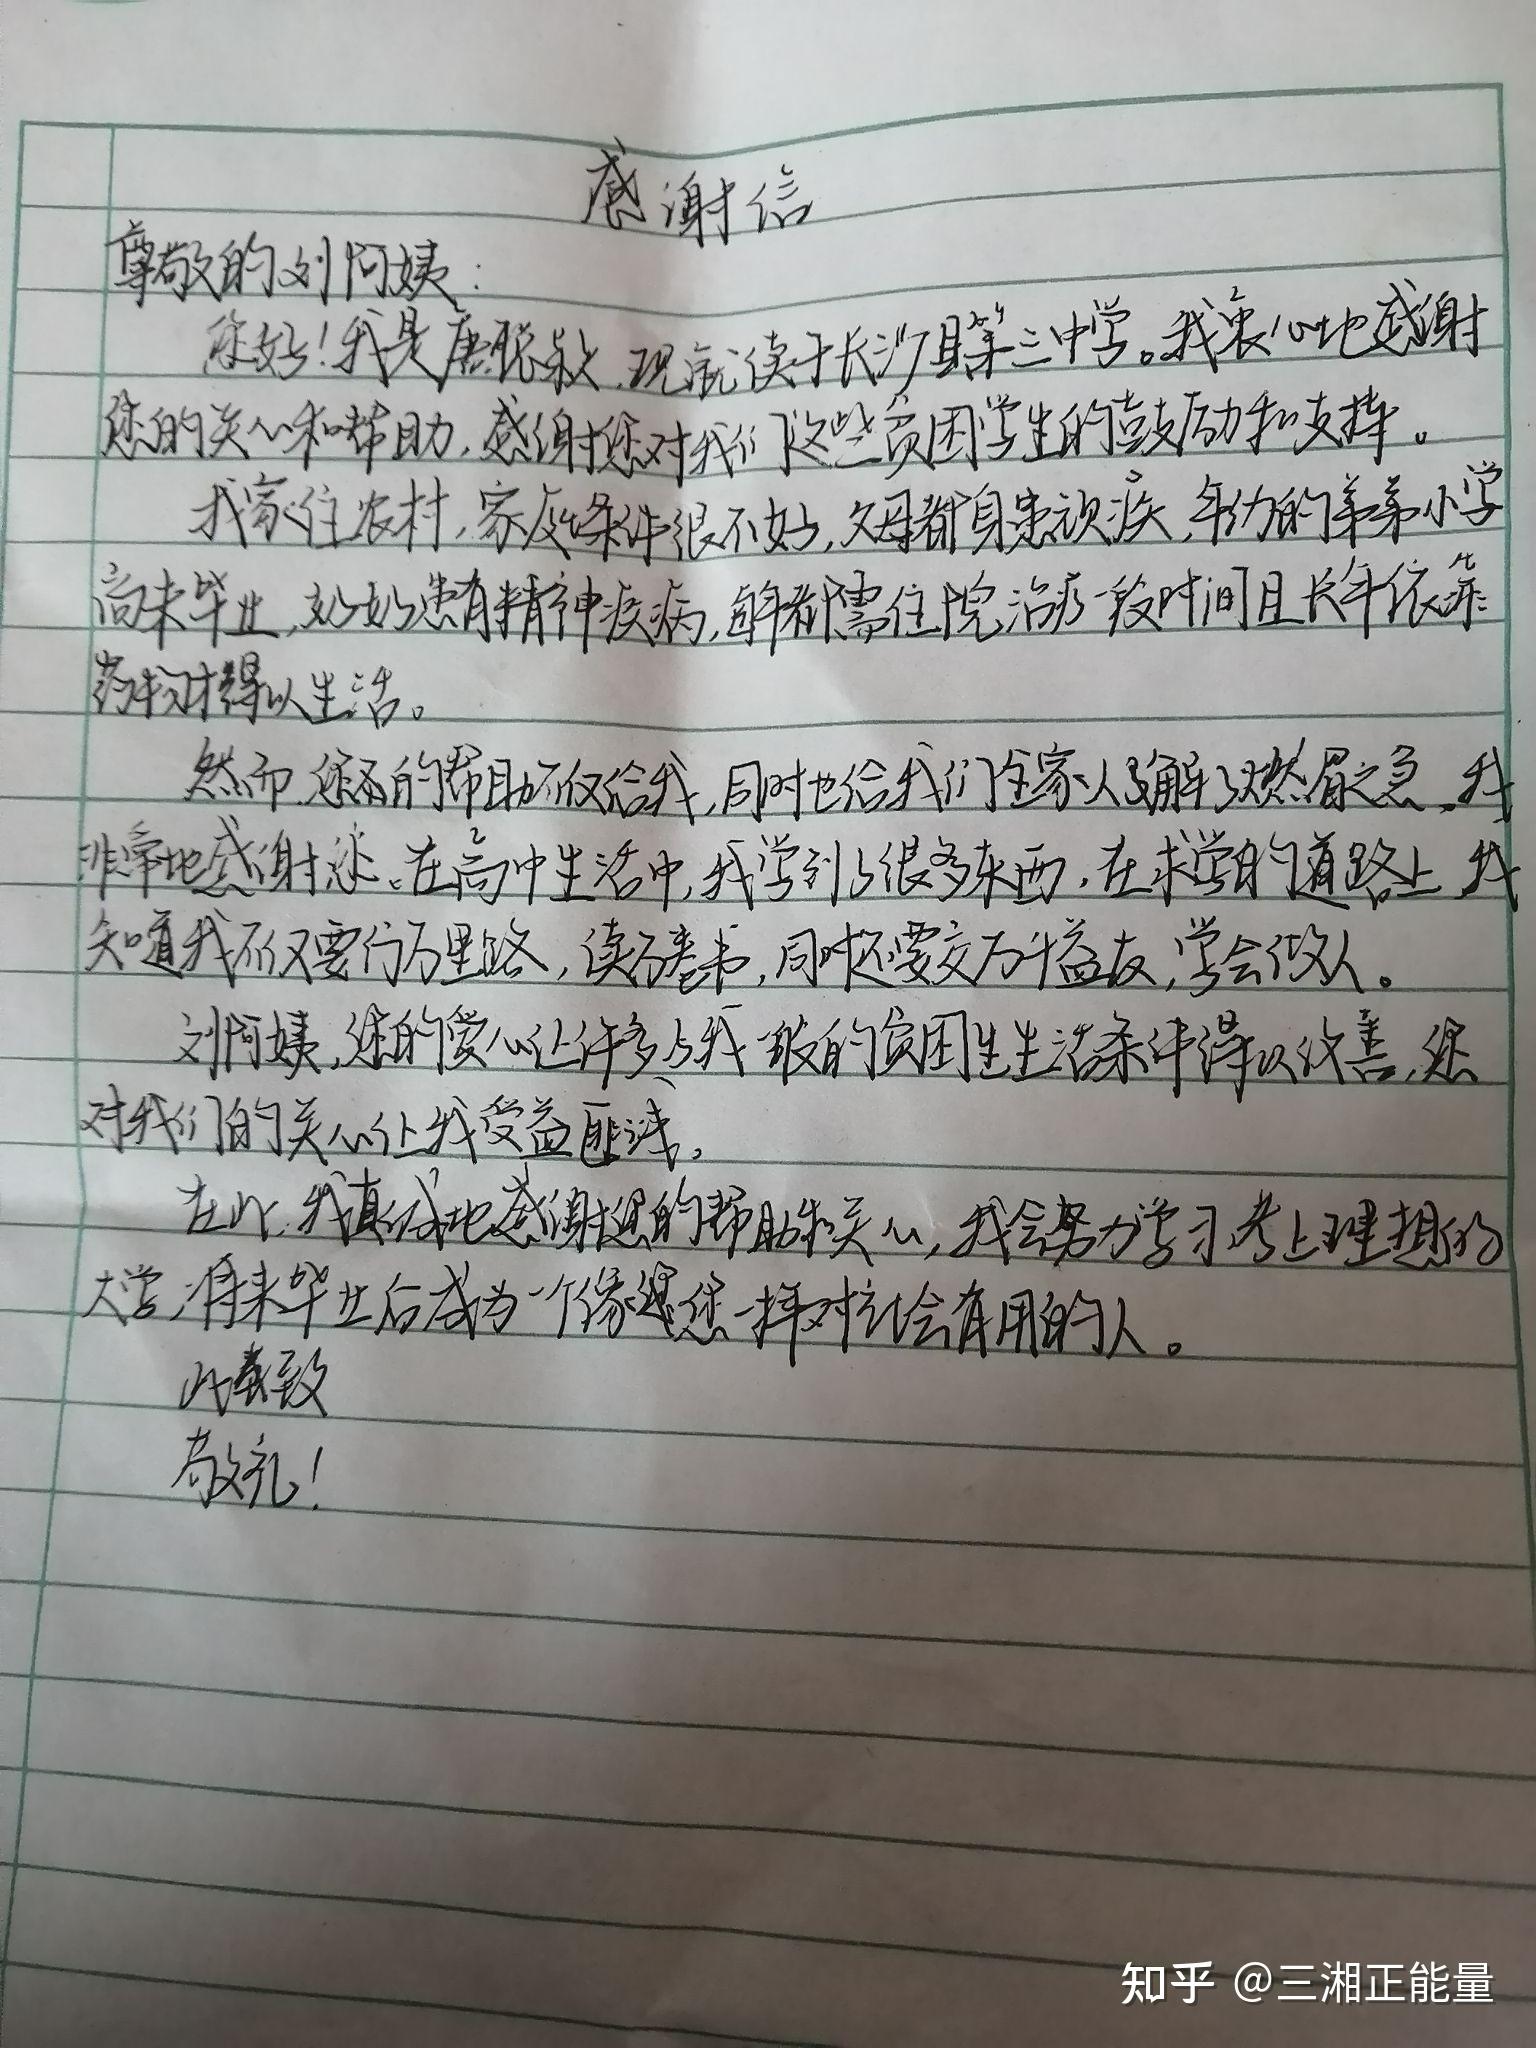 感谢信
尊敬的刘阿姨：
您好！我是唐聪，现就读于长沙县第三中学。我衷心地感谢
您的关心和帮助，感谢您对我们这些贫困学生的鼓励和支持。
我家住农村，家庭条件很不好，父母都身患顽疾，年幼的弟弟小学
尚未毕业，妈妈患有精神疾病，每年都需住院治疗一段时间且长年依靠
药物才得以生活。
然而，您的帮助不仅给我，同时也给我们全家人解了燃眉之急。我
非常地感谢您。在高中生活中，我学到了很多东西，在求学的道路上，我
知道我不仅要行万里路，读万卷书，同时还要交万千益友，学会做人。
刘阿姨，您的爱心让许多与我一般的贫困生生活条件得以改善，您
对我们的关心让我受益匪浅。
在此，我真诚地感谢您的帮助和关心，我会努力学习考上理想的
大学，将来毕业后成为一个像您一样对社会有用的人。
此致
敬礼！
知乎 @三湘正能量